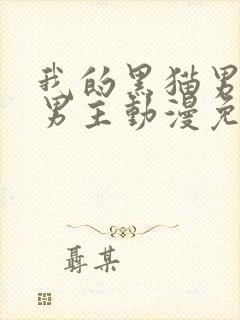 我的黑猫男
男主動漫免
聶某